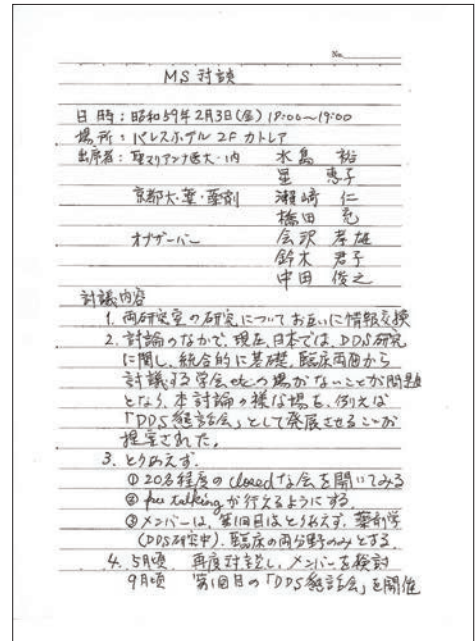 No.
MS 対談
日時：昭和59年2月3日(金) 18:00〜19:00
場所：パレスホテル 2F カトレア
出席者：聖マリアンナ医大・1内 水島 裕
星 恵子
京都大・薬・薬剤 瀬崎 仁
橋田 充
オブザーバー 会沢 孝雄
鈴木 君子
中田 俊之
討議内容
1. 両研究室の研究についてお互いに情報交換
2. 討論のなかで、現在、日本では、DDS研究
に関し、統合的に基礎、臨床両面から
討議する学会etcの場がないことが問題
となり、本討論の様な場を、例えば
「DDS懇話会」として発展させることが
提案された。
3. とりあえず、
① 20名程度のclosedな会を開いてみる
② free talkingが行えるようにする
③ メンバーは、第1回目はとりあえず、薬剤学
(DDS研究中)、臨床の両分野のみとする
4. 5月頃 再度討談し、メンバーを検討
9月頃 第1回目の「DDS懇話会」を開催